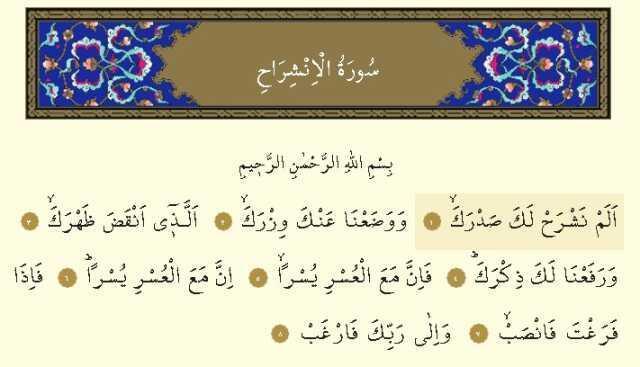 سُورَةُ الْاِنْشِرَاحِ
بِسْمِ اللهِ الرَّحْمٰنِ الرَّحٖيمِ
اَلَمْ نَشْرَحْ لَكَ صَدْرَكَۙ ﴿١﴾ وَوَضَعْنَا عَنْكَ وِزْرَكَۙ ﴿٢﴾ اَلَّـذٖٓى اَنْقَضَ ظَهْرَكَۙ ﴿٣﴾
وَرَفَعْنَا لَكَ ذِكْرَكَؕ ﴿٤﴾ فَاِنَّ مَعَ الْعُسْرِ يُسْراًۙ ﴿٥﴾ اِنَّ مَعَ الْعُسْرِ يُسْراًؕ ﴿٦﴾ فَاِذَا
فَرَغْتَ فَانْصَبْۙ ﴿٧﴾ وَاِلٰى رَبِّكَ فَارْغَبْ ﴿٨﴾